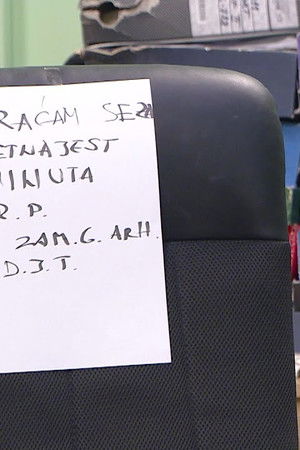 RAĆAM SE ZA
ETNAJEST
MINUTA
R. P.
ZAM. G. ARH.
D. J. T.